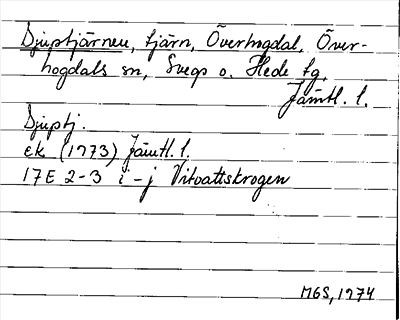 Djuptjärnen, tjärn, Överhogdal, Över-
hogdals sn, Svegs o. Hede tg,
Jämtl. l.
Djuptj.
ek (1973) Jämtl. l.
17E 2-3 i-j Vitvattskrogen
MGS, 1974